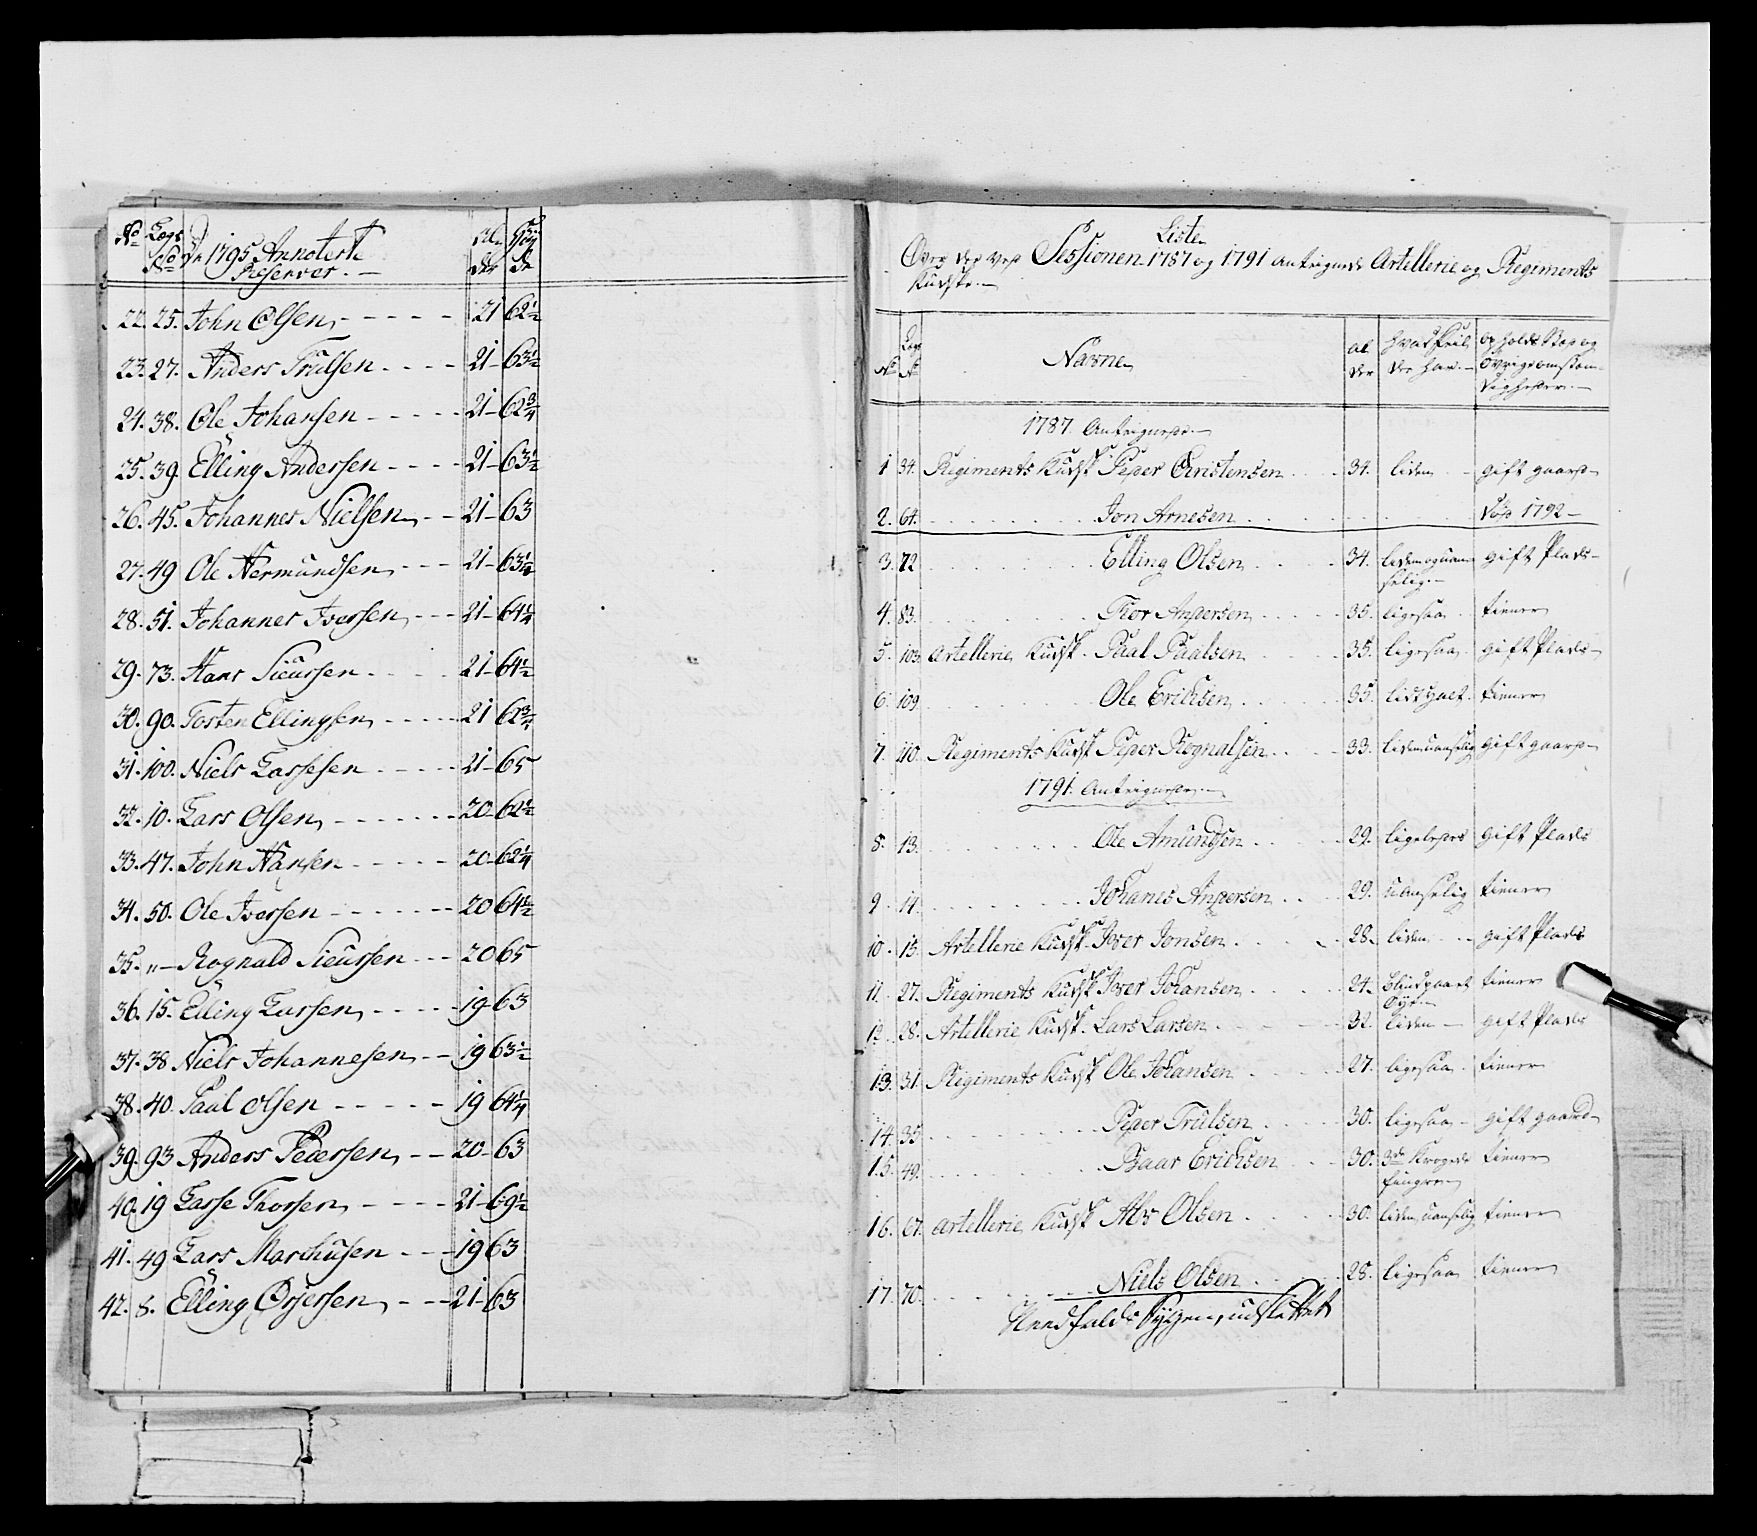 No Lægs No De 1795 Annoterte Reserver. Alder Höyde
22. 25. John Olsen 21 62½
23. 27. Anders Trulsen 21 63½
24. 38. Ole Johansen 21 62¾
25. 39. Elling Andersen 21 63½
26. 45. Johannes Nielsen 21 63
27. 49 Ole Hermundsen 21 63¼
28. 51. Johannes Iversen 21 64¼
29. 73. Hans Siursen 21 64½
30. 90. Tosten Ellingsen 21 62¾
31. 100. Niels Lassesen 21 65
32. 10. Lars Olsen 20 62½
33. 47. John Hansen 20 62¼
34. 50. Ole Iversen 20 64½
35. " Rognald Siursen 20 65
36. 15. Elling Larsen 19 63
37. 38 Niels Johannesen 19 63½
38. 40. Paul Olsen 19 64¼
39. 93 Anders Pedersen 20 63
40. 19 Lasse Thorsen 21 69½
41. 49 Lars Marchusen 19 63
42. 8. Elling Ørjersen 21 63
Liste
Over der ved Sessionen 1787 og 1791 antegnede Artellerie og Regiments
Kudske.
No Læg No Navne alder hvad Feil der har. opholds Sted og övrige omstændigheder.
1787 Antegnede.
1 34. Regiments Kudsk Peder Christensen 31. liden gift gaard
2. 64. Jon Arnesen Död 1792
3. 72 Elling Olsen 34. liden og uanselig gift Plads
4. 83. Tor Andersen 35. ligesaa tiener
5. 103. Artellerie Kudsk. Paal Paalsen 35. ligesaa gift Plads
6. 109. Ole Erichsen 35. lidt halt tiener
7. 110. Regiments Kudsk Peder Rognalsen 33. liden uanselig gift gaard
1791. Antegnede.
8. 13. Ole Amundsen 29. gift Plads
9. 14. Johanes Andersen 29. uanselig tiener
10. 15. Artellerie Kudsk. Iver Jonsen 28. liden gift Plads
11. 27. Regiments Kudsk Iver Johansen 24. blind paa et Öye tiener
12. 28. Artellerie Kudsk. Lars Larsen 32. liden gift Plads
13. 31. Regiments Kudsk Ole Johansen 27. ligesaa tiener
14. 35 Peder Trulsen 30. ligesaa gift gaard
15. 49. Baar Erichsen 30. 3de Krogede fingre tiener
16. 67. Artellerie Kudsk Olsen 30. liden, uanselig tiener
17. 70. Niels Olsen 28. ligesaa tiener
udslettet